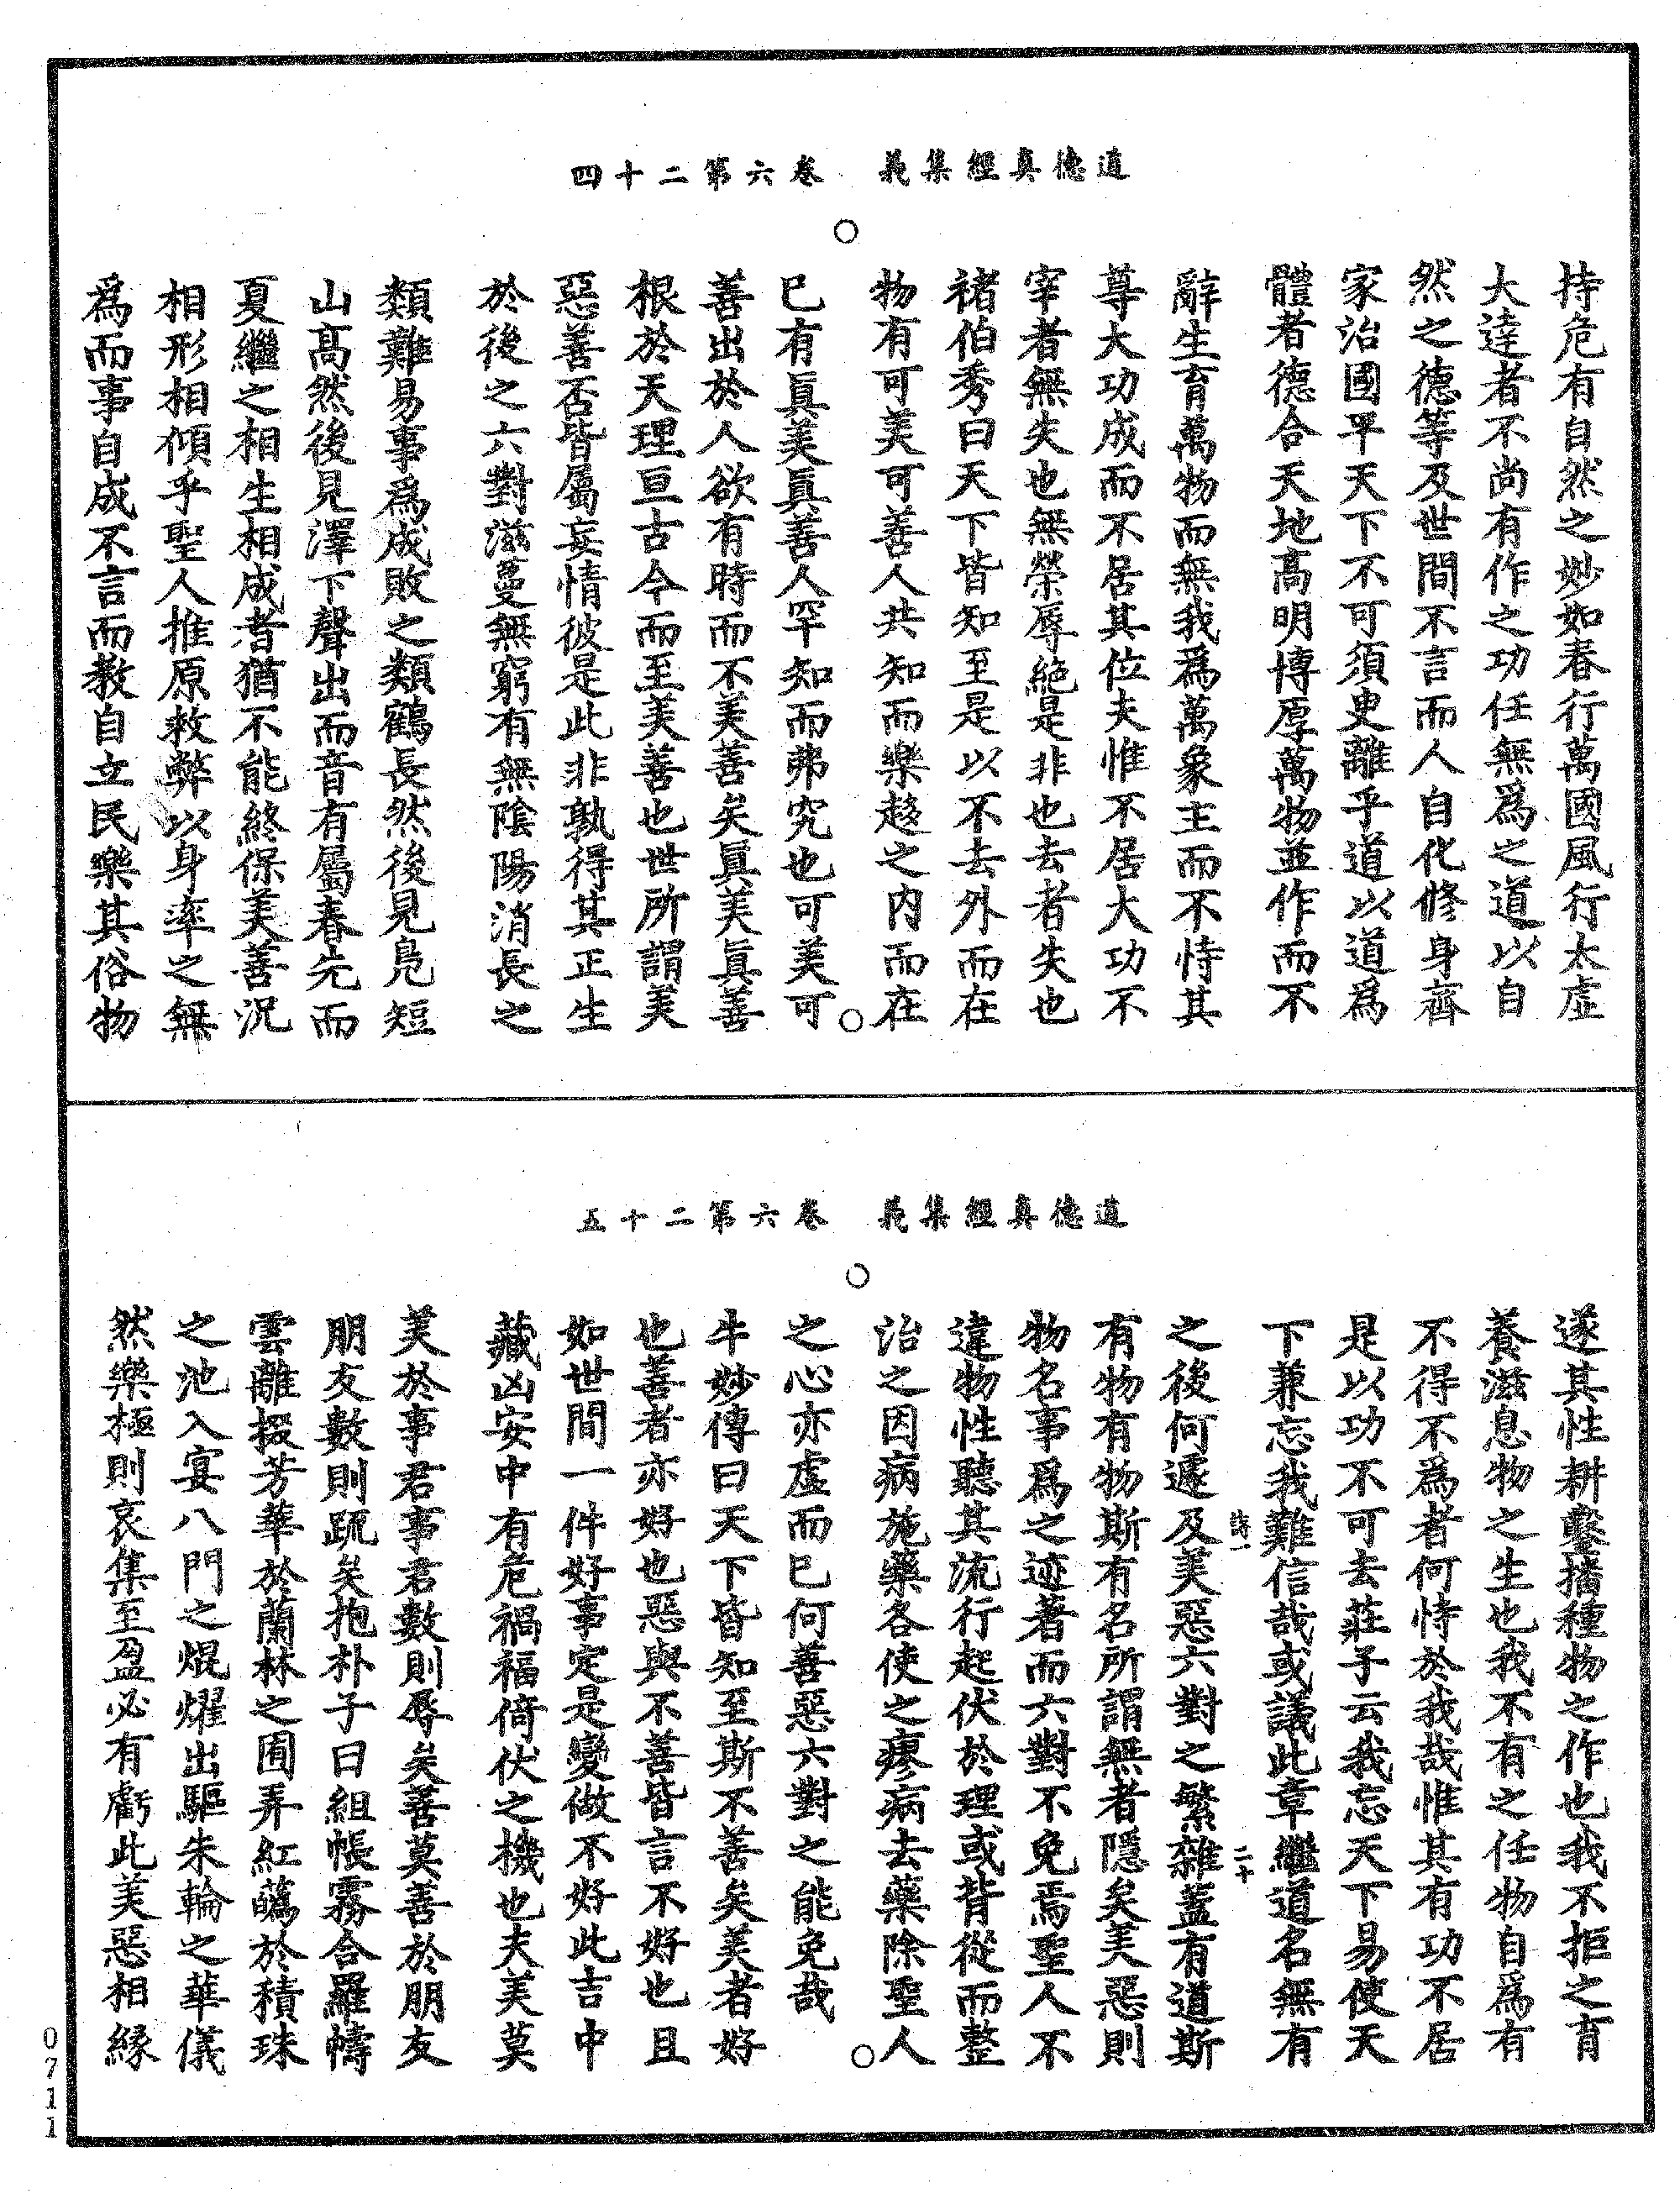 道德真經集義　卷六第二十四
持危有自然之妙如春行萬國風行太虛
大達者不尚有作之功任無爲之道以自
然之德等及世間不言而人自化修身齊
家治國平天下不可須臾離乎道以道爲
體者德合天地高明博厚萬物並作而不
辭生育萬物而無我爲萬象主而不恃其
尊大功成而不居其位夫惟不居大功不
宰者無失也無榮辱絕是非也去者失也
褚伯秀曰天下皆知至是以不去外而在
物有可美可善人共知而樂趍之內而在
已有眞美眞善人罕知而弗究也可美可
善出於人欲有時而不美善矣眞美眞善
根於天理亘古今而至美善也世所謂美
惡善否皆屬妄情彼是此非孰得其正生
於後之六對滋蔓無窮有無陰陽消長之
類難易事爲成敗之類鶴長然後見鳧短
山高然後見澤下聲出而音有屬春先而
夏繼之相生相成者猶不能終保美善況
相形相傾乎聖人推原救弊以身率之無
爲而事自成不言而教自立民樂其俗物
道德真經集義　卷六第二十五
遂其性耕鑿播種物之作也我不拒之育
養滋息物之生也我不有之任物自爲有
不得不爲者何恃於我哉惟其有功不居
是以功不可去莊子云我忘天下易使天
下兼忘我難信哉或議此章繼道名無有
詩一　二十
之後何遽及美惡六對之繁雜蓋有道斯
有物有物斯有名所謂無者隱矣美惡則
物名事爲之迹著而六對不免焉聖人不
違物性聽其流行起伏於理或背從而整
治之因病施藥各使之瘳病去藥除聖人
之心亦虛而已何善惡六對之能免哉
牛妙傳曰天下皆知至斯不善矣美者好
也善者亦好也惡與不善皆言不好也且
如世間一件好事定是變做不好此吉中
藏凶安中有危禍福倚伏之機也夫美莫
美於事君事君數則辱矣善莫善於朋友
朋友數則疏矣抱朴子曰組帳霧合羅幬
雲離掇芳華於蘭林之囿弄紅蘤於積珠
之池入宴八門之焜燿出驅朱輪之華儀
然樂極則哀集至盈必有虧此美惡相緣
0711